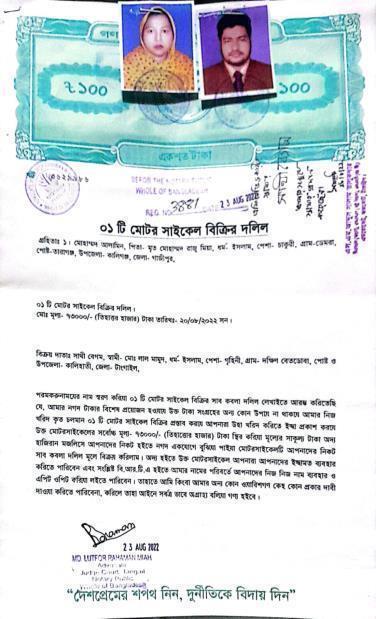 ৳১০০
১০০
একশত টাকা
BEFOR THE NOTARY PUBLIC
WHOLE OF BANGLADESH
REG. NO 3881 DATE 23 AUG 2022
০১ টি মোটর সাইকেল বিক্রির দলিল
গ্রহিতাঃ ১। মোহাম্মদ আলামিন, পিতা- মৃত মোহাম্মদ রাজু মিয়া, ধর্ম- ইসলাম, পেশা- চাকুরী, গ্রাম-ডেমরা,
পোষ্ট-তারাগঞ্জ, উপজেলা- কালিগঞ্জ, জেলা- গাজীপুর,
০১ টি মোটর সাইকেল বিক্রির দলিল।
মোঃ মূল্য- ৭৩০০০/- (তিহাত্তর হাজার) টাকা তারিখঃ- ২০/০৮/২০২২ সন।
বিক্রয় দাতাঃ সাথী বেগম, স্বামী- মোঃ লাল মামুদ, ধর্ম- ইসলাম, পেশা- গৃহিনী, গ্রাম- দক্ষিণ বেতডোবা, পোষ্ট ও
উপজেলা- কালিহাতী, জেলা- টাংগাইল,
পরমকরুনাময়ের নাম স্মরণ করিয়া ০১ টি মোটর সাইকেল বিক্রির সাব কবলা দলিল লেখাইতে আরম্ভ করিতেছি
যে, আমার নগদ টাকার বিশেষ প্রয়োজন হওয়ায় উক্ত টাকা সংগ্রহের অন্য কোন উপায় না থাকায় আমার নিজ
খরিদ কৃত চলমান ০১ টি মোটর সাইকেল বিক্রির প্রস্তাব করায় আপনারা উহা খরিদ করিতে ইচ্ছা প্রকাশ করায়
উক্ত মোটরসাইকেলের সর্বোচ্চ মূল্য- ৭৩০০০/- (তিহাত্তর হাজার) টাকা স্থির করিয়া মূল্যের সাকুল্য টাকা অদ্য
হাজিরান মজলিসে আপনাদের নিকট হইতে নগদ একযোগে বুঝিয়া পাইয়া মোটরসাইকেলটি আপনাদের নিকট
সাব কবলা দলিল মূলে বিক্রয় করিলাম। অদ্য হইতে উক্ত মোটরসাইকেল আপনারা আপনাদের ইচ্ছামত ব্যবহার
করিতে পারিবেন এবং সংশ্লিষ্ট বি.আর.টি.এ হইতে আমার নামের পরিবর্তে আপনাদের নিজ নিজ নাম ব্যবহার ও
এপিট ওপিট করিয়া লইতে পারিবেন। তাহাতে আমি কিংবা আমার অন্য কোন ওয়ারিশগণ কেহ কোন প্রকার দাবী
দাওয়া করিতে পারিবেনা, করিলে তাহা আইনে সর্বত্র ভাবে অগ্রাহ্য বলিয়া গণ্য হইবে।
23 AUG 2022
MD. LUTFOR RAHAMAN MIAH
Advocate
Judge Court, Tangail
Notary Public
Whole of Bangladesh
“দেশপ্রেমের শপথ নিন, দুর্নীতিকে বিদায় দিন”